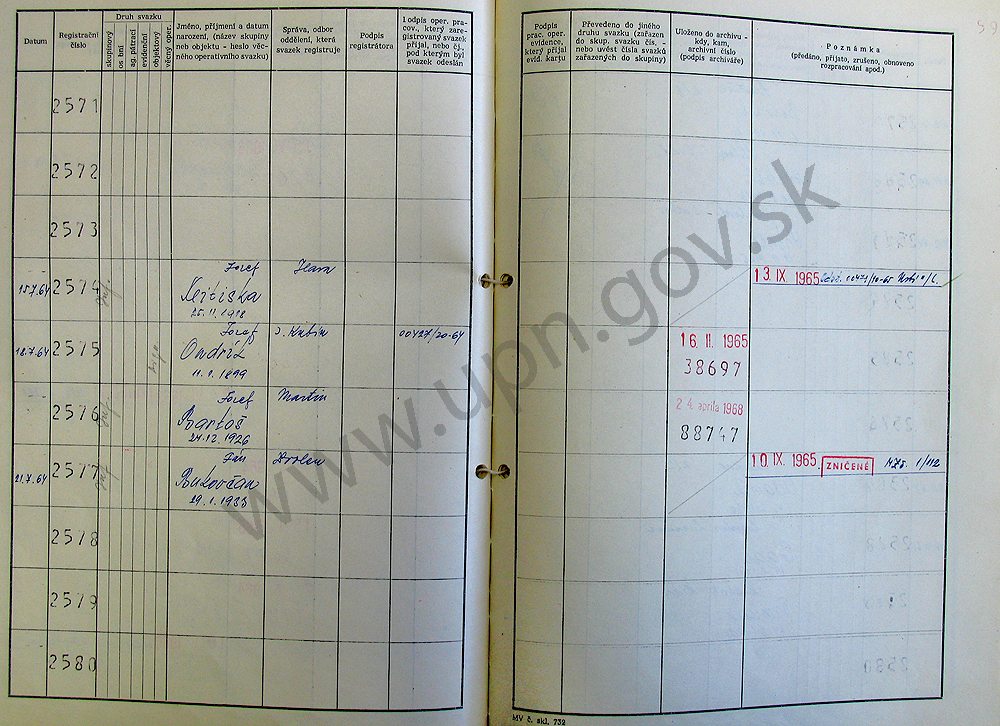 Datum
Registrační číslo
Druh svazku
skupinový
osobní
ag. pátrací
evidenční
objektový
věcný oper.
Jméno, příjmení a datum
narození, (název skupiny
neb objektu - heslo věc-
ného operativního svazku)
Správa, odbor
oddělení, která
svazek registruje
Podpis
registrátora
I odpis oper. pra-
cov., který zare-
gistrovaný svazek
přijal, nebo čj.,
pod kterým byl
svazek odeslán
Podpis
prac. oper.
evidence,
který přijal
evid. kartu
Převedeno do jiného
druhu svazku (zařazen
do skup. svazku čís. -
nebo uvést čísla svazků
zařazených do skupiny)
Uloženo do archivu -
kdy, kam,
archivní číslo
(podpis archiváře)
Poznámka
(předáno, přijato, zrušeno, obnoveno
rozpracování apod.)
2571
2572
2573
15.7.64 2574 Jozef
25.11.1918
13. IX. 1965
18.7.64 2575 Jozef
Ondríž
11.1.1899
00427/20-64
16. II. 1965
38697
2576 Jozef Martin
Bartoš
24.12.1926
24. apríla 1968
88747
21.7.64 2577 Ján
Bukovčan
29.1.1933
10. IX. 1965 ZNIČENÉ
2578
2579
2580
MV č. skl. 732
www.upn.gov.sk